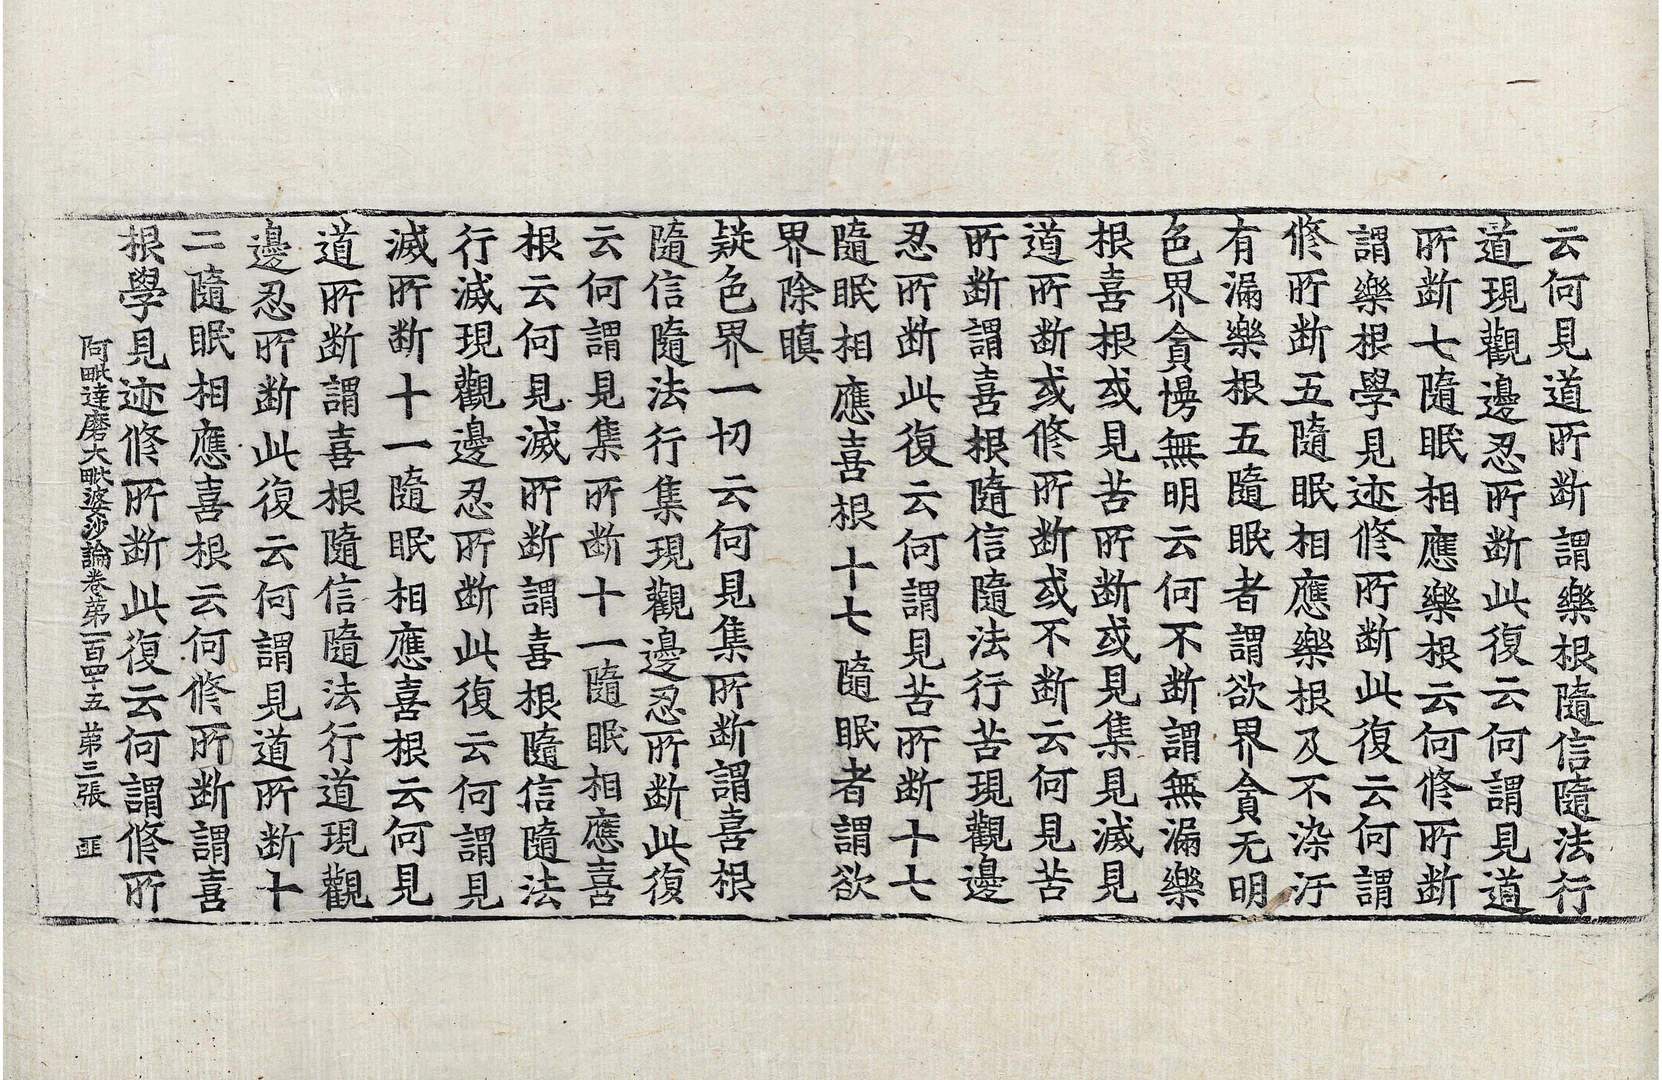 云何見道所斷謂樂根隨信隨法行
道現觀邊忍所斷此復云何謂見道
所斷七隨眠相應樂根云何修所斷
謂樂根學見迹修所斷此復云何謂
修所斷五隨眠相應樂根及不染汙
有漏樂根五隨眠者謂欲界貪无明
色界貪慢無明云何不斷謂無漏樂
根喜根或見苦所斷或見集見滅見
道所斷或修所斷或不斷云何見苦
所斷謂喜根隨信隨法行苦現觀邊
忍所斷此復云何謂見苦所斷十七
隨眠相應喜根十七隨眠者謂欲
界除瞋
疑色界一切云何見集所斷謂喜根
隨信隨法行集現觀邊忍所斷此復
云何謂見集所斷十一隨眠相應喜
根云何見滅所斷謂喜根隨信隨法
行滅現觀邊忍所斷此復云何謂見
滅所斷十一隨眠相應喜根云何見
道所斷謂喜根隨信隨法行道現觀
邊忍所斷此復云何謂見道所斷十
二隨眠相應喜根云何修所斷謂喜
根學見迹修所斷此復云何謂修所
阿毗達磨大毗婆沙論卷第一百四十五 第三張 匪